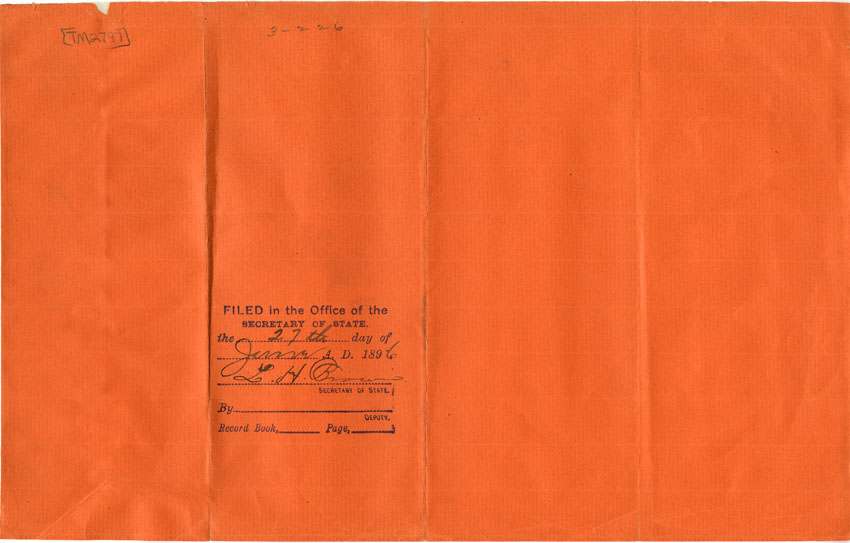 [TM2797]
3-226
FILED in the Office of the
SECRETARY OF STATE.
the 27th day of
June A. D. 1896
L. H. Brown
SECRETARY OF STATE.
By
DEPUTY.
Record Book, Page,